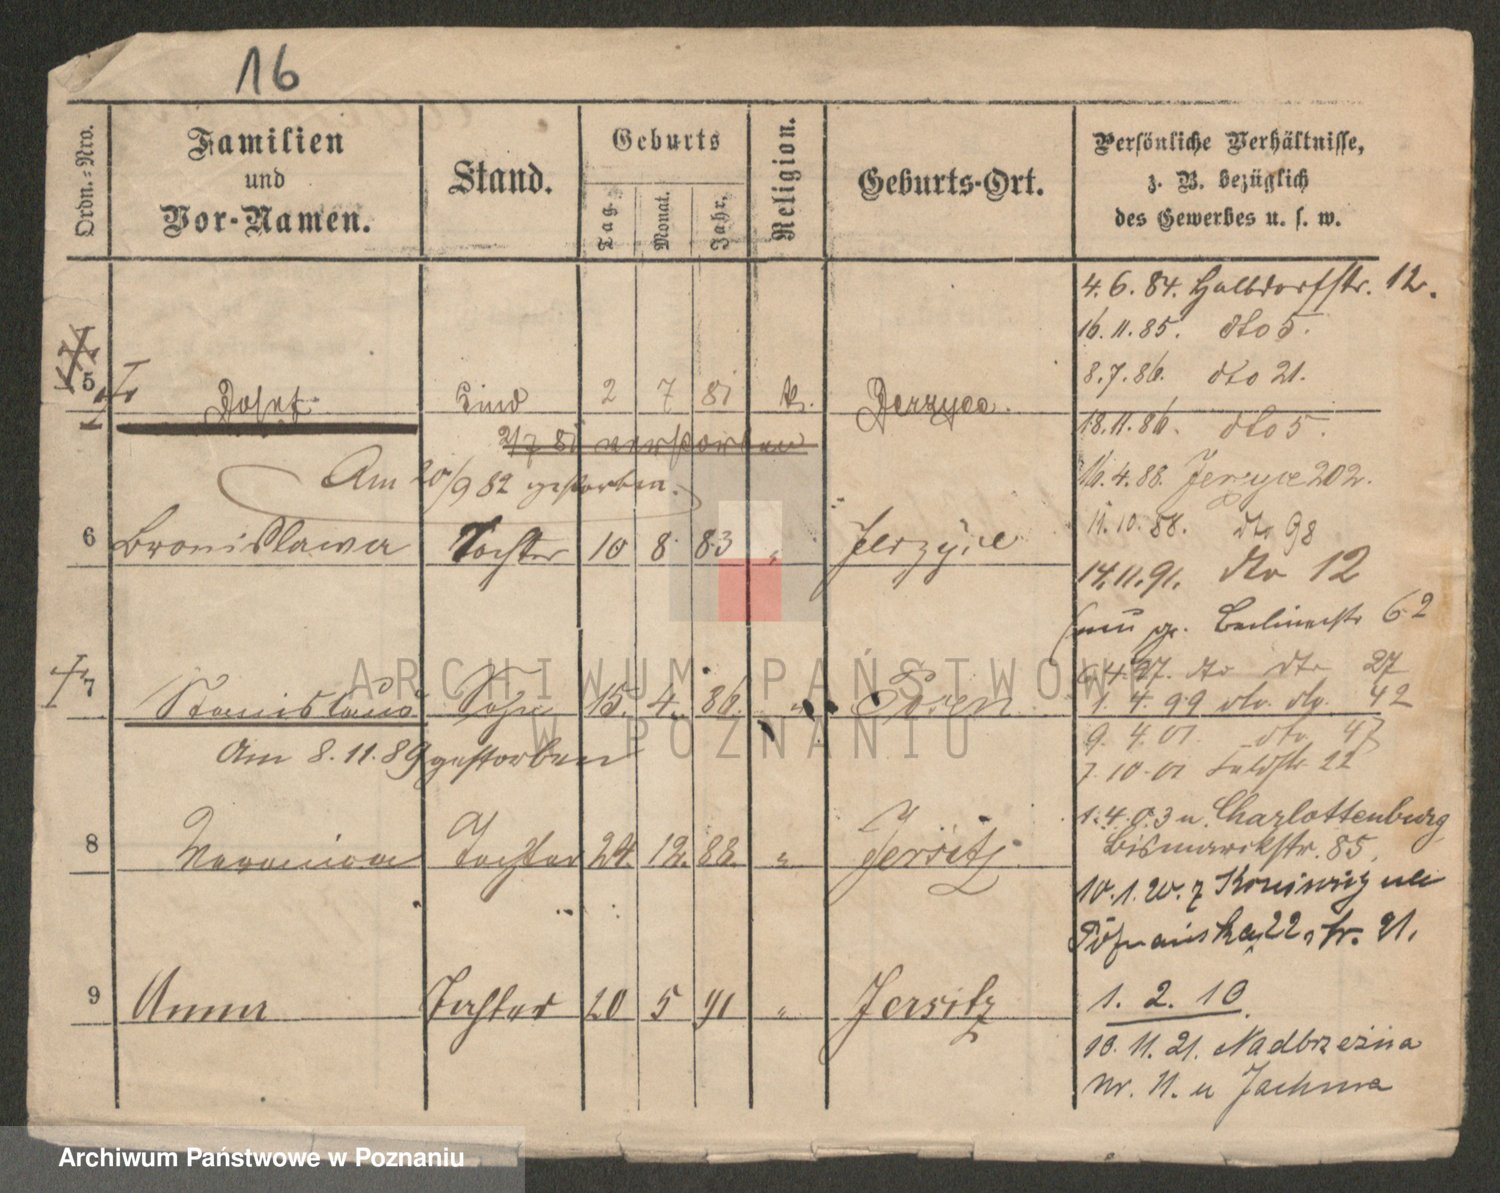 16
Ordn.-Nro.
Familien
und
Vor-Namen.
Stand.
Geburts
Tag.
Monat.
Jahr.
Religion.
Geburts-Ort.
Persönliche Verhältnisse,
z. B. bezüglich
des Gewerbes u. s. w.
4. 6. 84. Halbdorfstr. 12.
16. 11. 85. dto 5.
8. 7. 86. dto 21.
5 Josef Kind 2 7 81 k. Jerzyce.
18. 11. 86. dto 5.
2/7 81 verstorben
Am 20/9 82 gestorben.
16. 4. 88. Jerzyce 202.
11. 10. 88. dto 98
6 Bronislawa Tochter 10 8 83 " Jerzyce
14. 11. 91. dto 12
gr. Berlinerstr 62
6. 4. 97. dto dto 27
7 Stanislaus Sohn 15. 4. 86. " Posen
1. 4. 99 dto. 42
9. 4. 01. dto. 47
Am 8. 11. 89 gestorben
7. 10. 01 Feldstr. 22
1. 4. 03 n. Charlottenburg
Bismarckstr. 85.
8 Veronica Tochter 24. 12. 88. " Jersitz.
10. 1. 20. z
Poznańska 22, tr. 21.
9 Anna Tochter 20 5 91 " Jersitz
1. 2. 10.
10. 11. 21. Nadbrzeżna
Nr. 11. u Jachma
ARCHIWUM PAŃSTWOWE
W POZNANIU
Archiwum Państwowe w Poznaniu